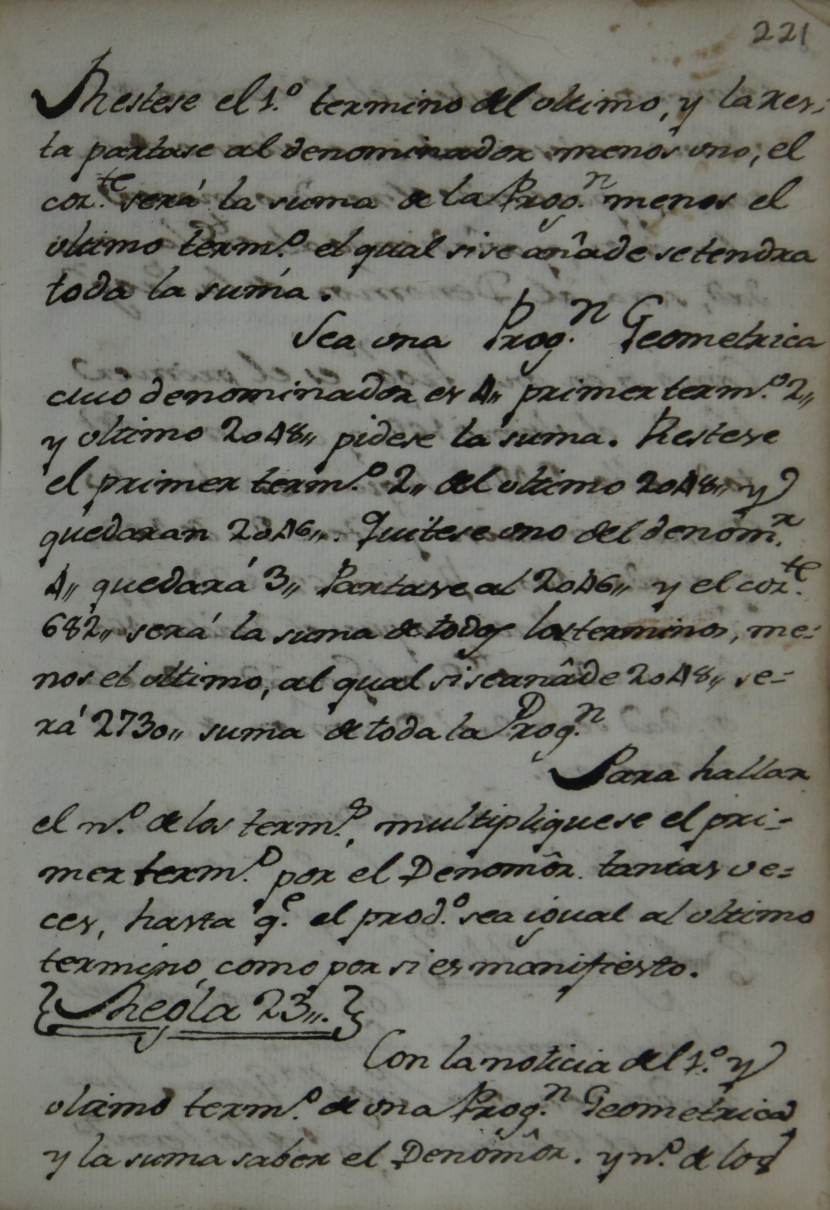 221
Restese el 1.º termino del ultimo, y la res-
ta partase al denominador menos uno, el
coz.te será la suma de la Prog.n menos el
ultimo term.º el qual si se añade se tendra
toda la suma.
Sea una Prog.n Geometrica
cuio denominador es 4,, primer term.º 2,,
y ultimo 2048,, pidese la suma. Restese
el primer term.º 2,, del ultimo 2048,, y
quedaran 2046,,. Quitese uno del denom.r
4,, quedará 3,, Partase al 2046,, y el coz.te
682,, será la suma de todos los terminos, me-
nos el ultimo, al qual si se añade 2048,, se-
rá 2730,, suma de toda la Prog.n
Para hallar
el n.º de los term.s, multipliquese el pri-
mer term.º por el Denomôr. tantas ve-
ces, hasta q.e el prod.º sea igual al ultimo
termino, como por si es manifiesto.
{Regla 23,,.}
Con la noticia del 1.º y
ultimo term.º de una Prog.n Geometrica
y la suma saber el Denomôr. y n.º de los